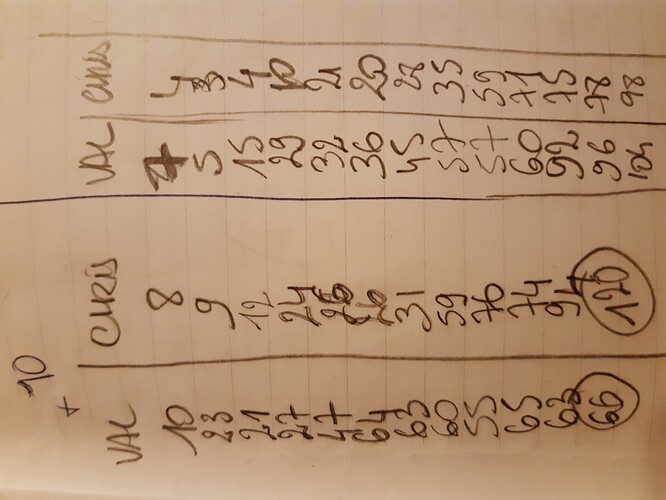 + 10
VAL CHRIS VAL CHRIS
10 8 7 4
23 9 5 3
21 12 15 4
27 24 29 10
47 26 32 21
64 26 36 20
63 31 45 28
60 59 57 35
55 70 57 59
65 74 60 71
63 94 92 75
66 120 96 78
104 98